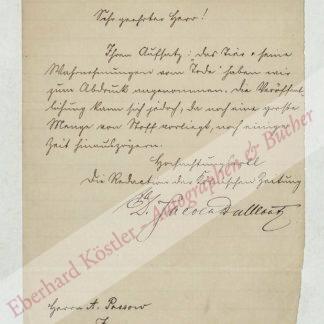 Sehr geehrter Herr!
Ihren Aufsatz: "das Tier & seine
Wahrnehmungen vom Tode" haben wir
zum Abdruck angenommen. Die Veröffent-
lichung kann sich jedoch, da noch eine große
Menge von Stoff vorliegt, noch einige
Zeit hinauszögern.
Hochachtungsvoll
Die Redaction der Kölnischen Zeitung
Herrn A. Passow
Eberhard Köstler - Autographen & Bücher